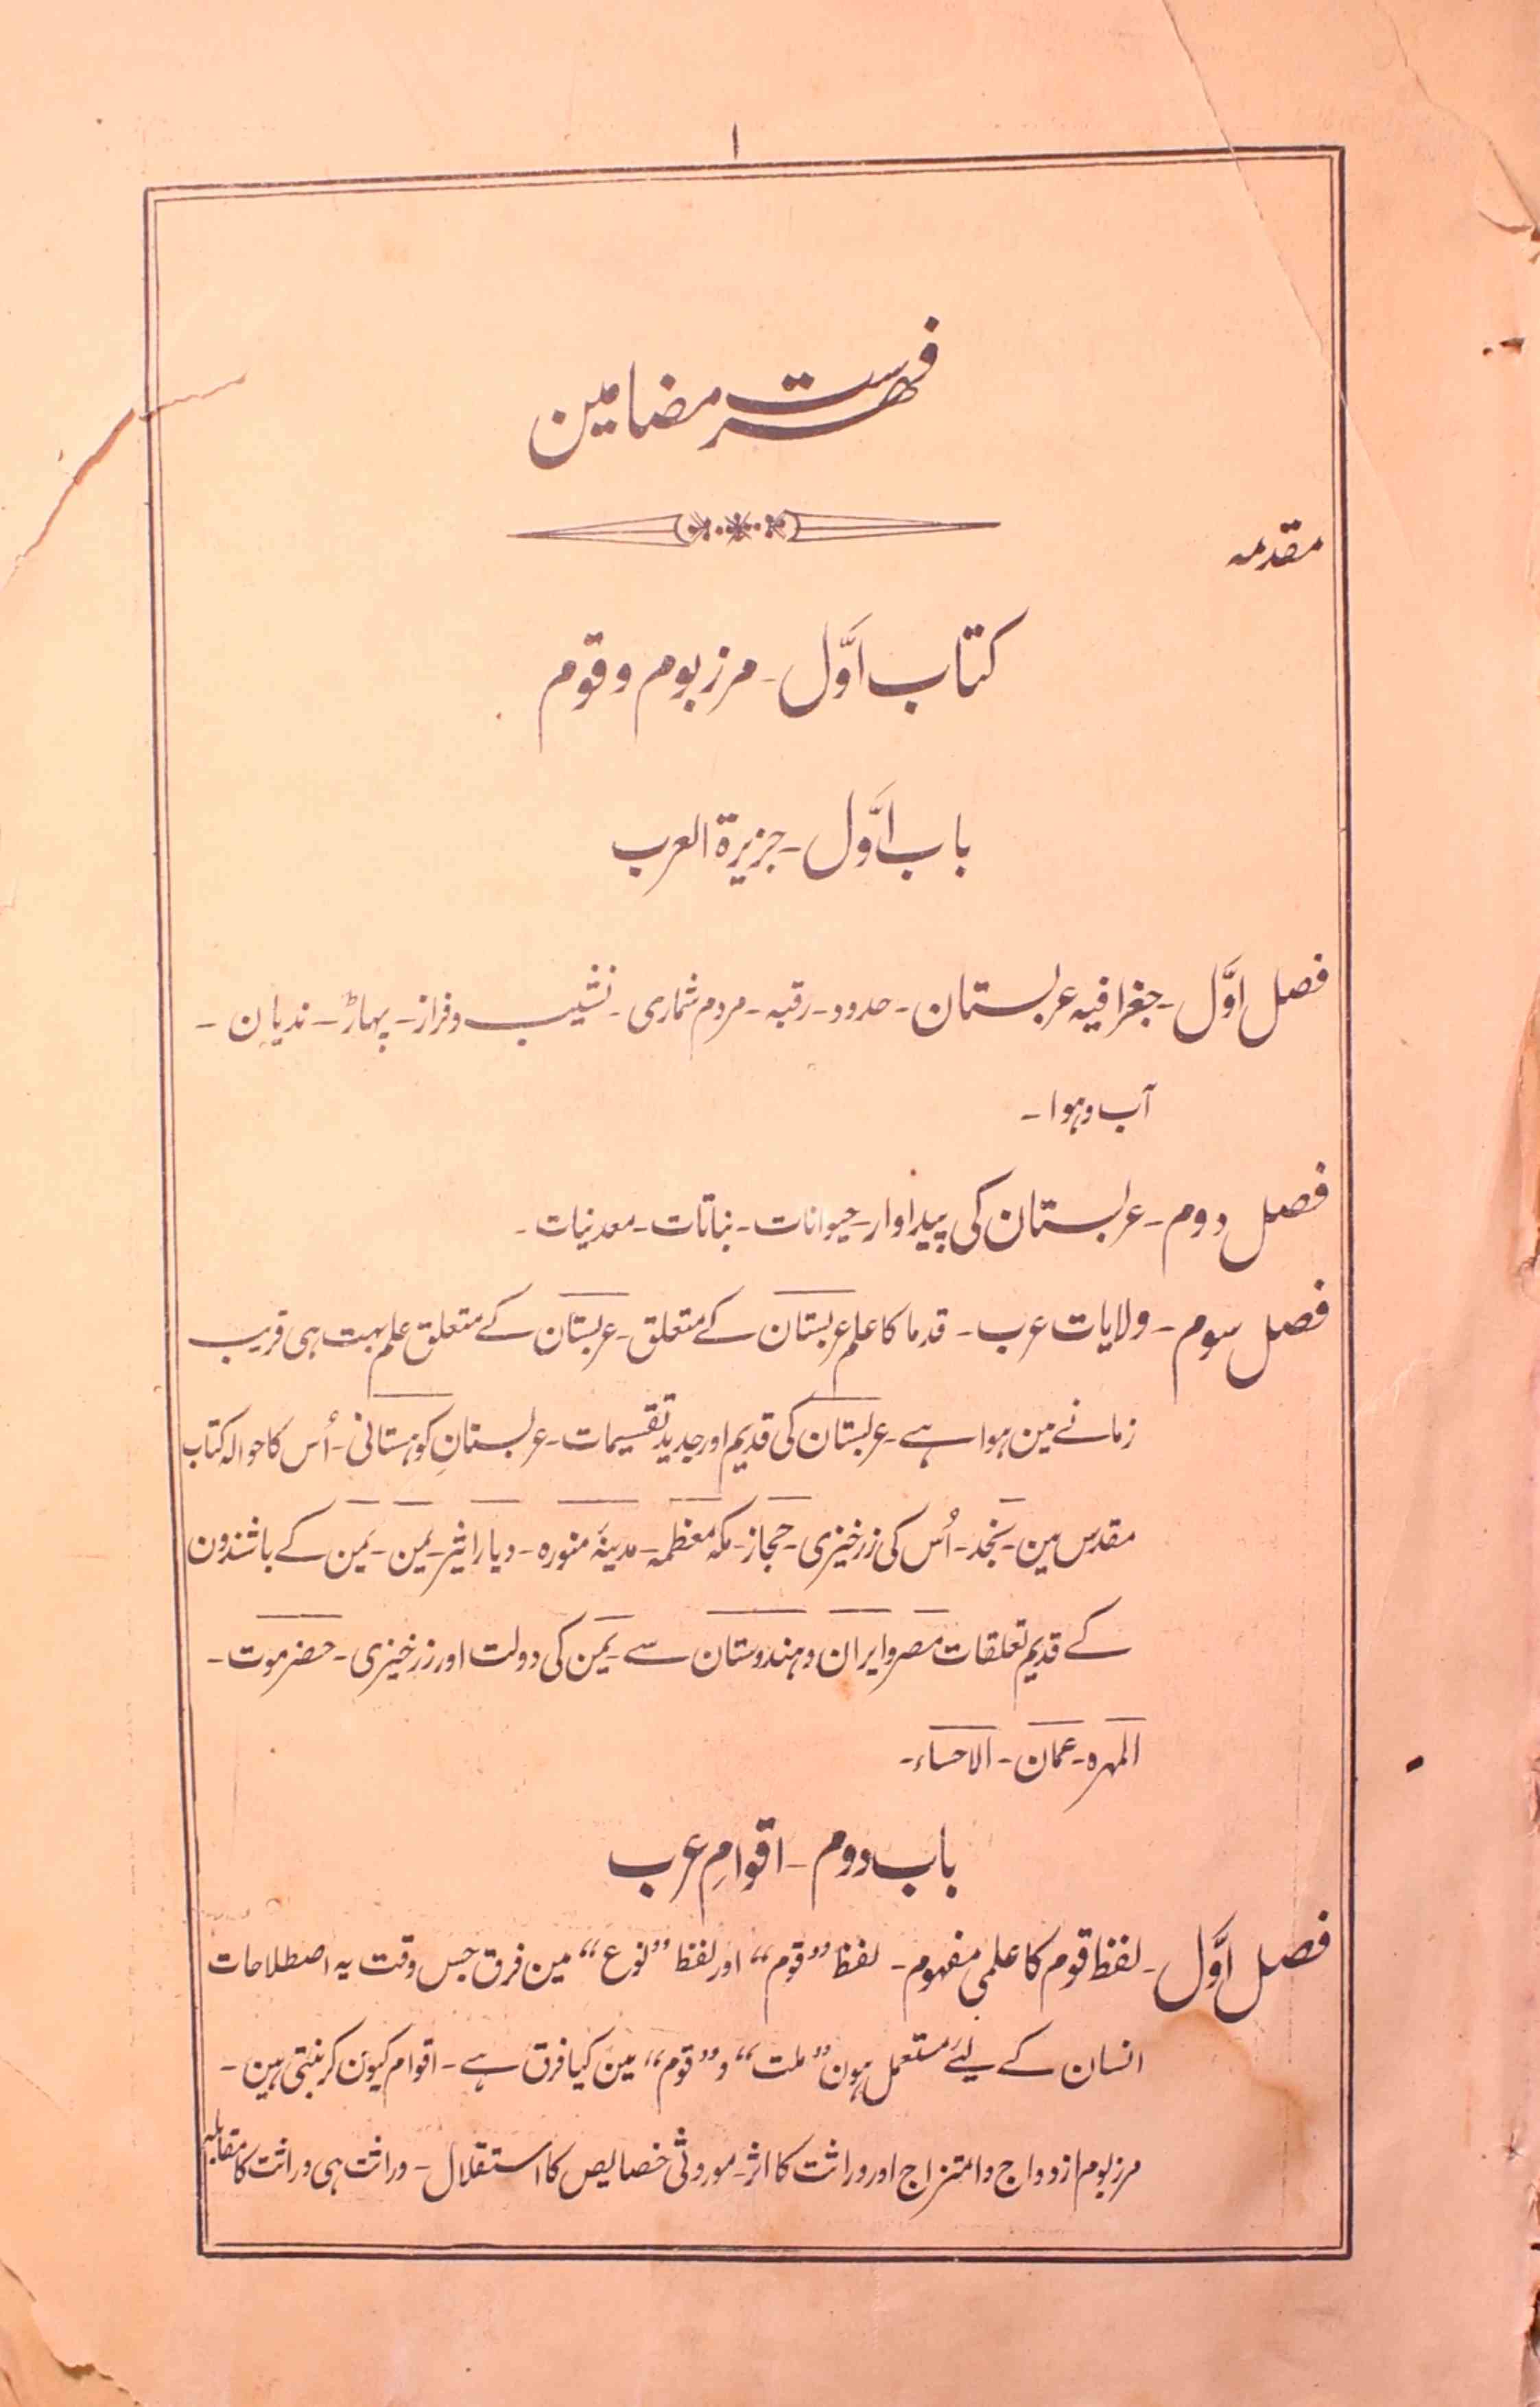 ۱
فهرست مضامین
مقدمہ
کتاب اوَّل - مرزبوم و قوم
باب اوَّل - جزیرۃ العرب
فصل اوَّل - جغرافیہ عربستان - حدود - رقبہ - مردم شماری - نشیب و فراز - پہاڑ - ندیان -
آب و ہوا -
فصل دوم - عربستان کی پیداوار - حیوانات - نباتات - معدنیات -
فصل سوم - ولایات عرب - قدما کا علم عربستان کے متعلق - عربستان کے متعلق علم بہت ہی قریب
زمانے مین ہوا ہے - عربستان کی قدیم اور جدید تقسیمات - عربستانِ کوہستانی - اُس کا حوالہ کتاب
مقدس مین - نجد - اُس کی زرخیزی - حجاز - مکہ معظمہ - مدینۂ منورہ - دیار اثیر - یمن - یمن کے باشندون
کے قدیم تعلقات مصر و ایران و ہندوستان سے - یمن کی دولت اور زرخیزی - حضرموت -
المہرہ - عمان - الاحساء -
باب دوم - اقوامِ عرب
فصل اوَّل - لفظ قوم کا علمی مفہوم - لفظ ”قوم“ اور لفظ ”نوع“ مین فرق جس وقت یہ اصطلاحات
انسان کے لیئے مستعمل ہون ”ملت“ و ”قوم“ مین کیا فرق ہے - اقوام کیون کر بنتی ہین -
مرزبوم ازدواج و امتزاج اور وراثت کا اثر - موروثی خصایص کا استقلال - وراثت ہی وراثت کا مقابلہ